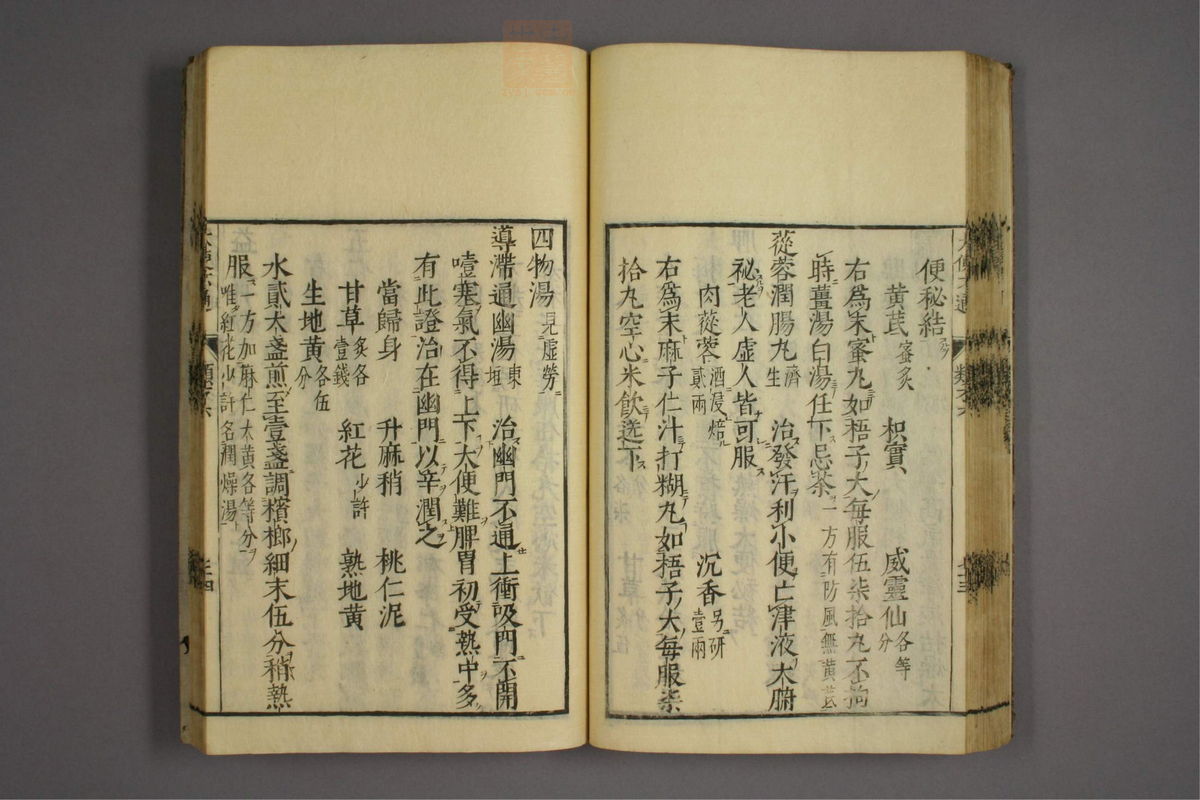 便秘結
黄芪蜜炙 枳實 威靈仙各等分
右爲末蜜丸如梧子大毎服伍柒拾丸不拘
時薑湯白湯任下忌茶一方有防風無黄芪
蓯蓉潤腸丸濟生 治發汗利小便亡津液大腑
秘老人虚人皆可服
肉蓯蓉酒浸焙貳兩 沉香另研壹兩
右爲末麻子仁汁打糊丸如梧子大毎服柒
拾丸空心米飲送下
四物湯見虚勞
導滯通幽湯東垣 治幽門不通上衝吸門不開
噎塞氣不得上下大便難脾胃初受熱中多
有此證治在幽門以辛潤之
當歸身 升麻稍 桃仁泥
甘草炙各壹錢 紅花少許 熟地黄
生地黄各伍分
水貳大盏煎至壹盏調檳榔細末伍分稍熱
服一方加麻仁大黄各等分唯紅花少許名潤燥湯